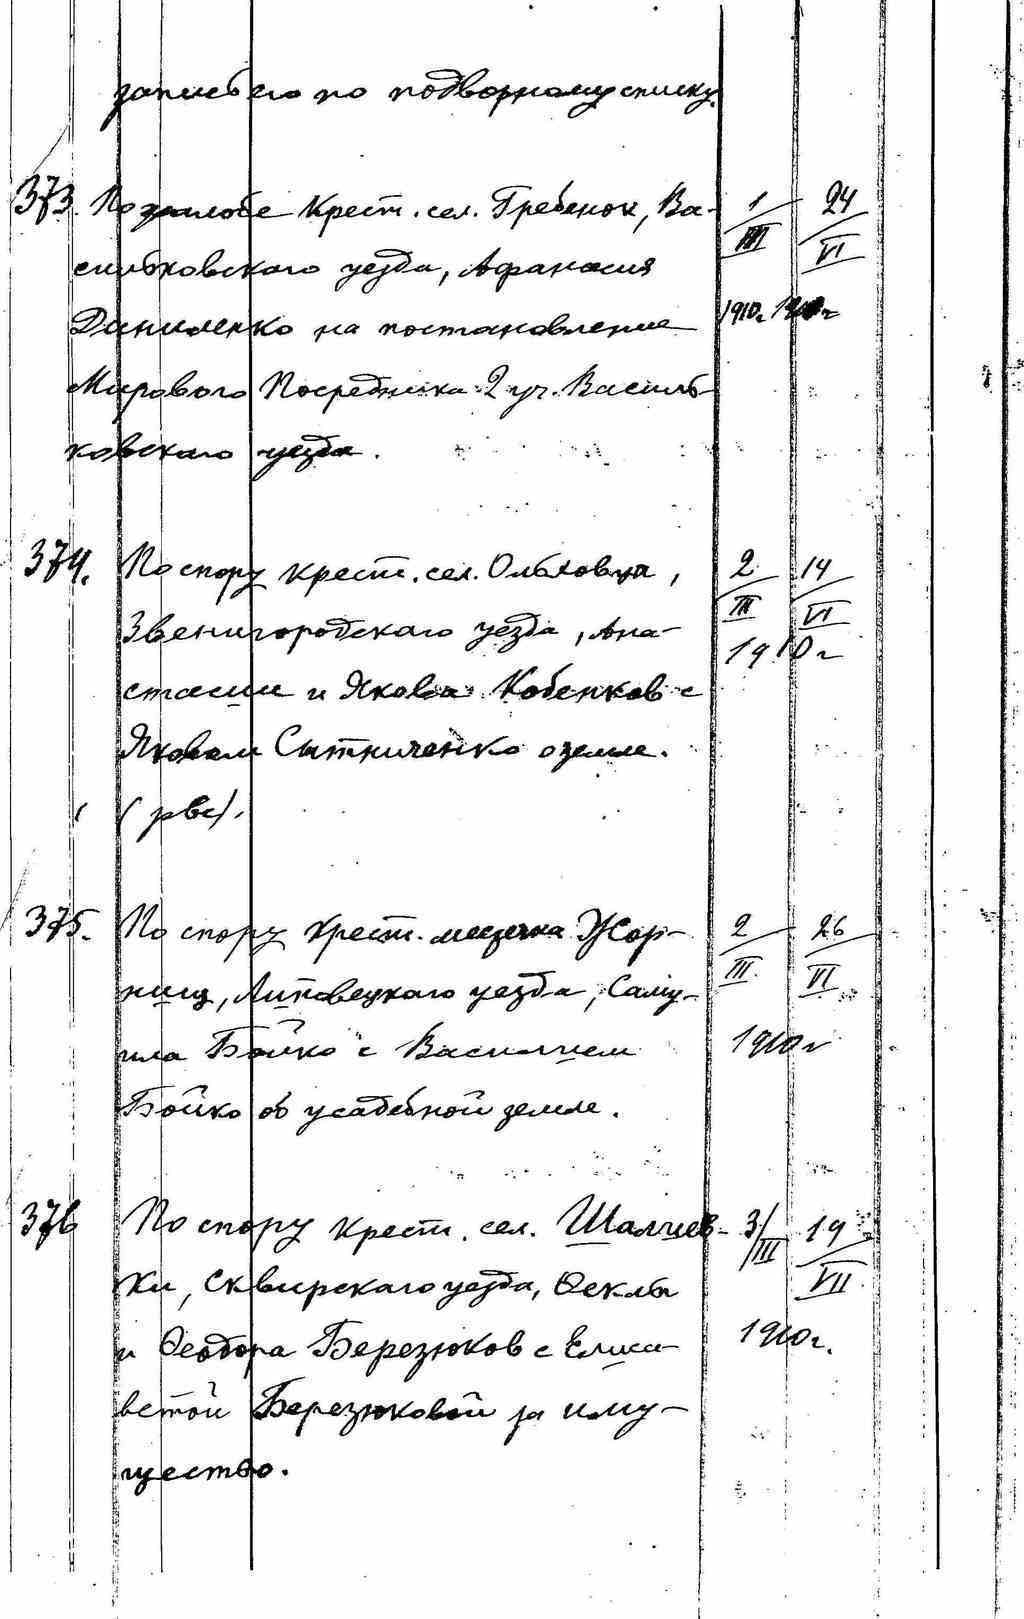 запись его по подворному списку.
373. По жалобе крест. сел. Гребенок, Ва- 1/III 24/VI
сильковскаго уезда, Афанасия
Даниленко на постановление 1910 г. 1910 г
Мирового Посредника 2 уч. Василь-
ковскаго уезда.
374. По спору крест. сел. Ольховца, 2/III 14/VI
Звенигородскаго уезда, Ана- 1910 г
стасии и Якова Кобенков с
Яковом Сытниченко о земле.
(рвс).
375. По спору крест. местечка Жор- 2/III. 26/VI
нищ, Липовецкаго уезда, Саму-
ила Бойко с Василием 1910 г
Бойко об усадебной земле.
376 По спору крест. сел. Шалиев- 3/III 19/VII
ки, Сквирскаго уезда, Феклы
и Феодора Березюков с Елиса- 1910 г.
ветой Березюковой за иму-
щество.